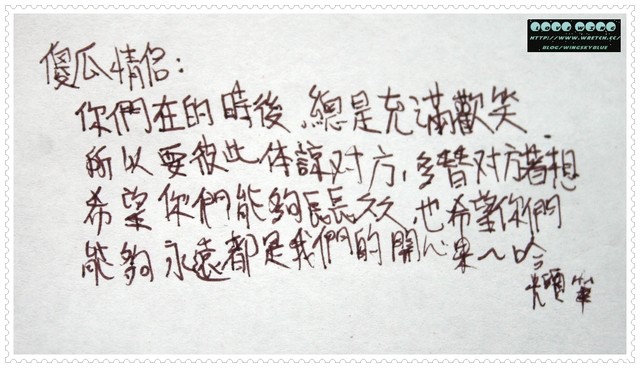 HTTP://WWW.WRETCH.CC/
BLOG/WINGSKYBLUE
傻瓜情侶:
你們在的時後,總是充滿歡笑.
所以要彼此体諒对方,多替对方著想
希望你們能夠長長久久,也希望你們
能夠永遠都是我們的開心果~哈
筆